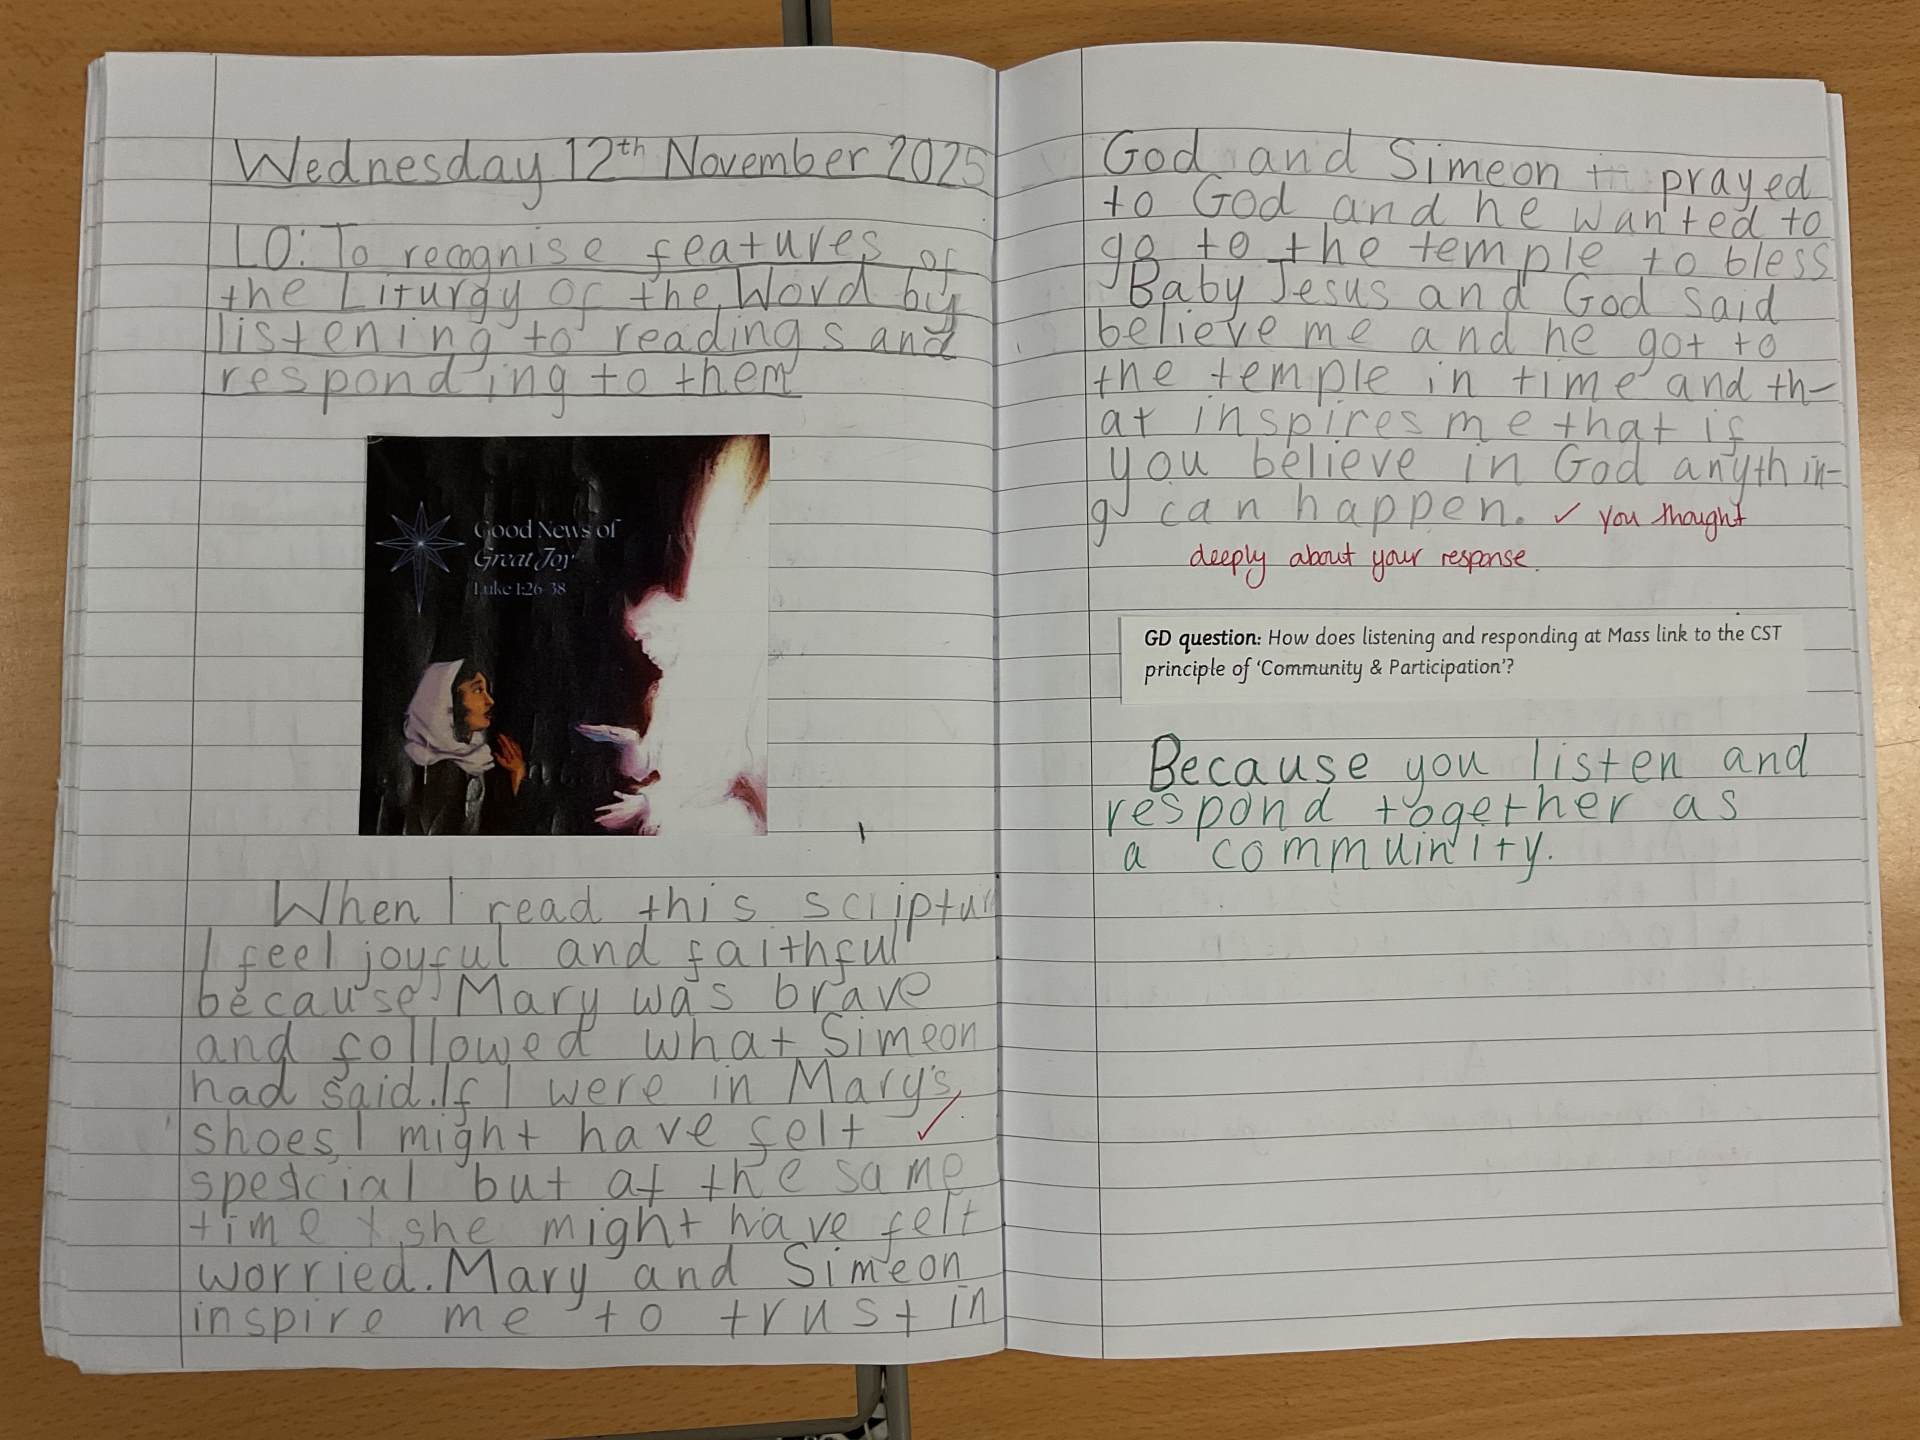 Wednesday 12th November 2025
LO: To recognise features of
the Liturgy of the Word by
listening to readings and
responding to them
Good News of
Great Joy
Luke 1:26-38
When I read this scriptur
I feel joyful and faithful
because Mary was brave
and followed what Simeon
had said. If I were in Mary's
shoes, I might have felt ✓
special but at the same
time she might have felt
worried. Mary and Simeon
inspire me to trust in
God and Simeon prayed
to God and he wanted to
go to the temple to bless
Baby Jesus and God said
believe me and he got to
the temple in time and th-
at inspires me that if
you believe in God anythin-
g can happen. ✓ you thought
deeply about your response.
GD question: How does listening and responding at Mass link to the CST
principle of 'Community & Participation'?
Because you listen and
respond together as
a commuinity.